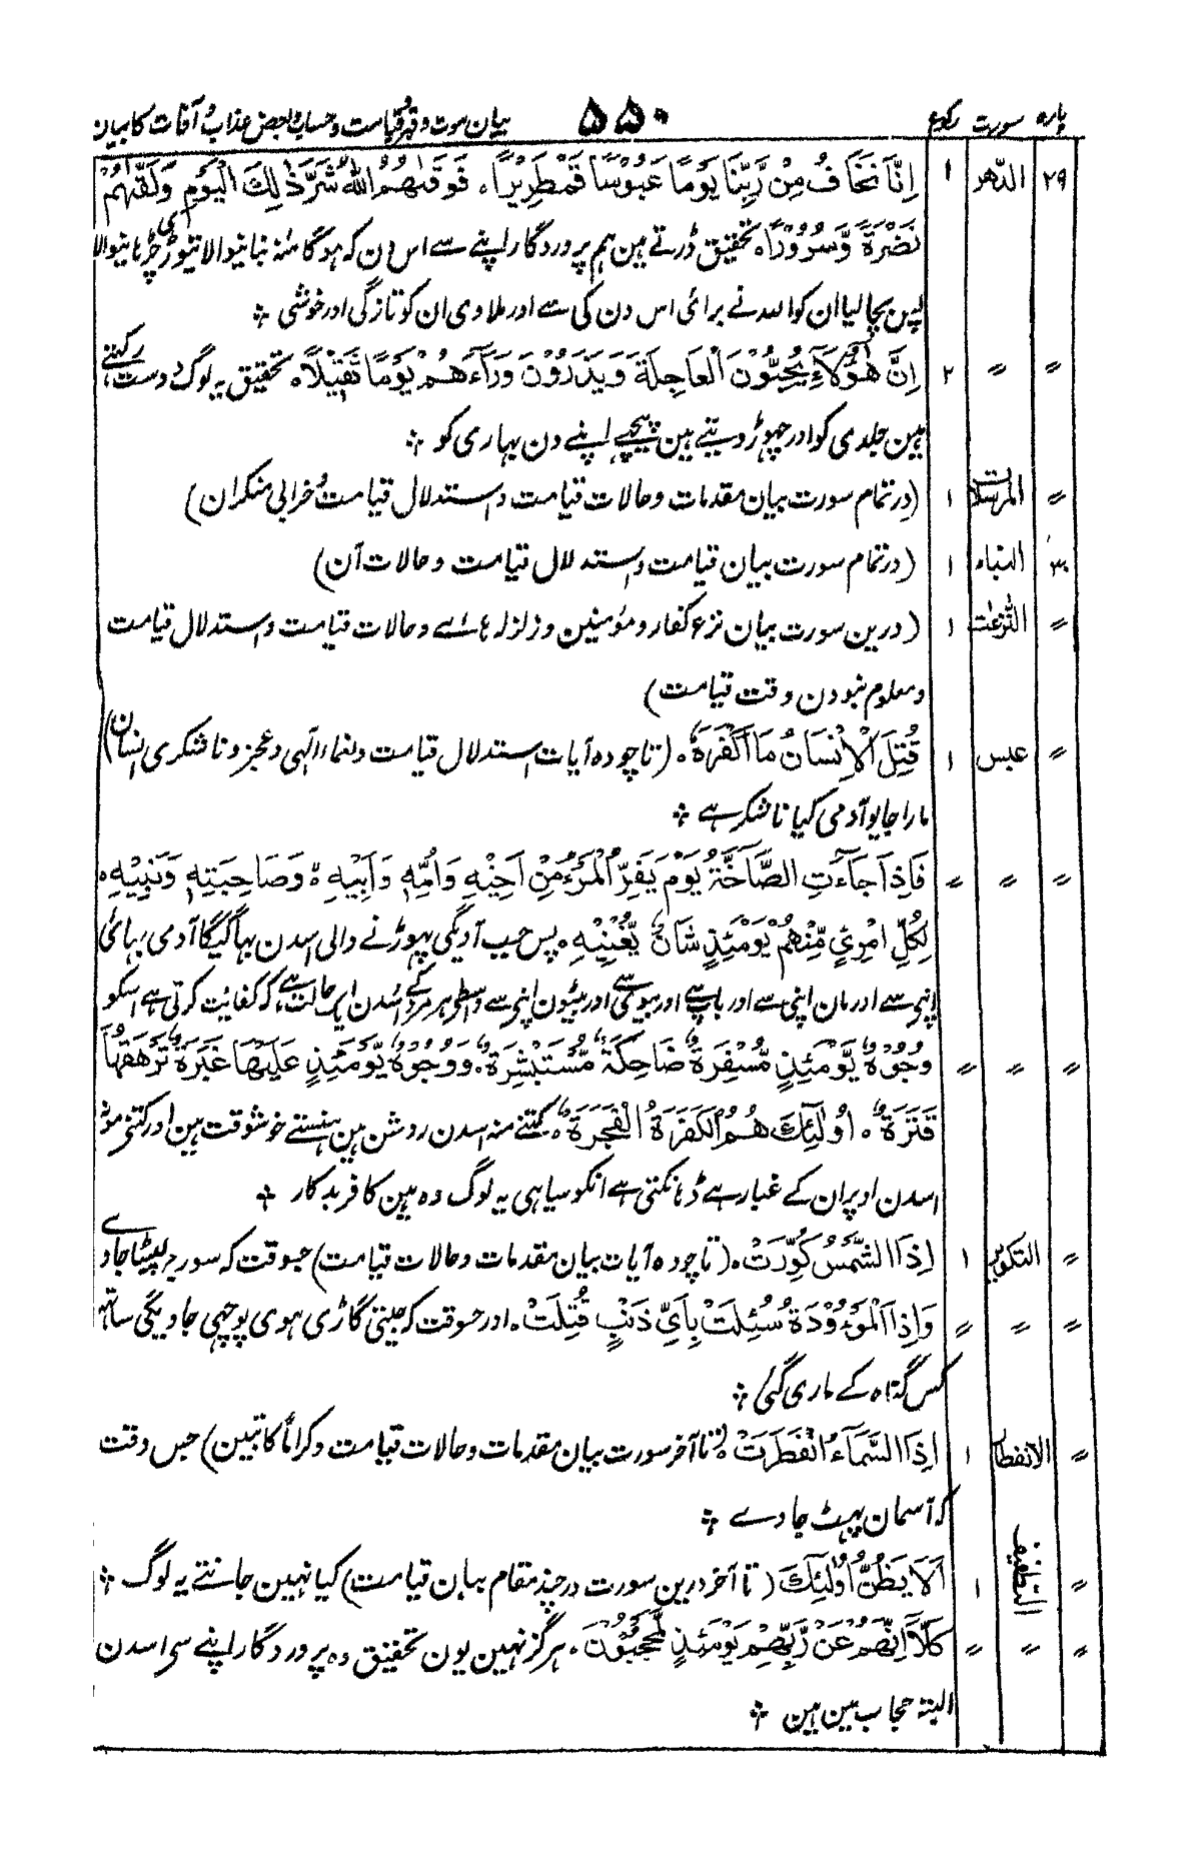 پارہ سورت رکوع ۵۵۰ بیان موت و قبر و قیامت و حساب و بعض عذاب و آفات کا بیان
۲۹ الدّھر ۱ اِنَّا نَخَافُ مِنْ رَّبِّنَا يَوْمًا عَبُوْسًا قَمْطَرِيْرًا۔ فَوَقٰىهُمُ اللّٰهُ شَرَّ ذٰلِكَ الْيَوْمِ وَلَقّٰىهُمْ
نَضْرَةً وَّسُرُوْرًا۔ تحقیق ڈرتے ہین ہم پروردگار اپنے سے اس دن کہ ہوگا منہ بنانیوالا تیوڑی چڑہانیوالا
پس بچا لیا ان کو اللہ نے برائی اس دن کی سے اور ملا دی ان کو تازگی اور خوشی ؞
〃 〃 ۲ اِنَّ هٰٓؤُلَآءِ يُحِبُّوْنَ الْعَاجِلَةَ وَيَذَرُوْنَ وَرَآءَهُمْ يَوْمًا ثَقِيْلًا۔ تحقیق یہ لوگ دوست رکہتے
ہین جلدی کو اور چہوڑ دیتے ہین پیچہے اپنے دن بہاری کو ؞
〃 المرسلات ۱ (درتمام سورت بیان مقدمات و حالات قیامت و استدلال قیامت و خرابی منکران)
۳۰ النباء ۱ (درتمام سورت بیان قیامت و استدلال قیامت و حالات آن)
〃 النّٰزعٰت ۱ (درین سورت بیان نزع کفار و مؤمنین و زلزلہ ہائے و حالات قیامت و استدلال قیامت
و معلوم نبودن وقت قیامت)
〃 عبس ۱ قُتِلَ الْاِنْسَانُ مَا اَكْفَرَهٗ۔ (تا چودہ آیات استدلال قیامت و نعماء الٰہی و عجز و ناشکری انسان)
مارا جایو آدمی کیا ناشکر ہے ؞
〃 〃 〃 فَاِذَا جَآءَتِ الصَّآخَّةُ يَوْمَ يَفِرُّ الْمَرْءُ مِنْ اَخِيْهِ وَاُمِّهٖ وَاَبِيْهِ ۙ وَصَاحِبَتِهٖ وَبَنِيْهِ۔
لِكُلِّ امْرِئٍ مِّنْهُمْ يَوْمَئِذٍ شَاْنٌ يُّغْنِيْهِ۔ پس جب آویگی پہوڑنے والی اسدن بہاگیگا آدمی بہائی
اپنی سے اور مان اپنی سے اور باپ سے اور بیوی سے اور بیٹون اپنی سے واسطے ہر مرد کے اُسدن ایک حالت ہے کہ کفایت کرتی ہے اسکو
〃 〃 〃 وُجُوْهٌ يَّوْمَئِذٍ مُّسْفِرَةٌ ضَاحِكَةٌ مُّسْتَبْشِرَةٌ۔ وَوُجُوْهٌ يَّوْمَئِذٍ عَلَيْهَا غَبَرَةٌ تَرْهَقُهَا
قَتَرَةٌ۔ اُولٰٓئِكَ هُمُ الْكَفَرَةُ الْفَجَرَةُ۔ کتنے منہ اسدن روشن ہین ہنستے خوشوقت ہین اور کتنی مونہ
اسدن اوپر ان کے غبار ہے ڈہانکتی ہے انکو سیاہی یہ لوگ وہ ہین کافر بدکار ؞
〃 التکویر ۱ اِذَا الشَّمْسُ كُوِّرَتْ۔ (تا چودہ آیات بیان مقدمات و حالات قیامت) جسوقت کہ سورج لپیٹا جاوے
〃 〃 〃 وَاِذَا الْمَوْءٗدَةُ سُئِلَتْ بِاَيِّ ذَنْبٍ قُتِلَتْ۔ اور جسوقت کہ جیتی گاڑی ہوی پوچہی جاویگی ساتھ
کس گناہ کے ماری گئی ؞
〃 الانفطار ۱ اِذَا السَّمَآءُ انْفَطَرَتْ (تا آخر سورت بیان مقدمات و حالات قیامت و کراماً کاتبین) جس وقت
کہ آسمان پہٹ جاوے ؞
〃 التطفیف ۱ اَلَا يَظُنُّ اُولٰٓئِكَ (تا آخر درین سورت در چند مقام بیان قیامت) کیا نہین جانتے یہ لوگ ؞
〃 〃 〃 كَلَّآ اِنَّهُمْ عَنْ رَّبِّهِمْ يَوْمَئِذٍ لَّمَحْجُوْبُوْنَ۔ ہرگز نہین یون تحقیق وہ پروردگار اپنے سی اسدن
البتہ حجاب مین ہین ؞